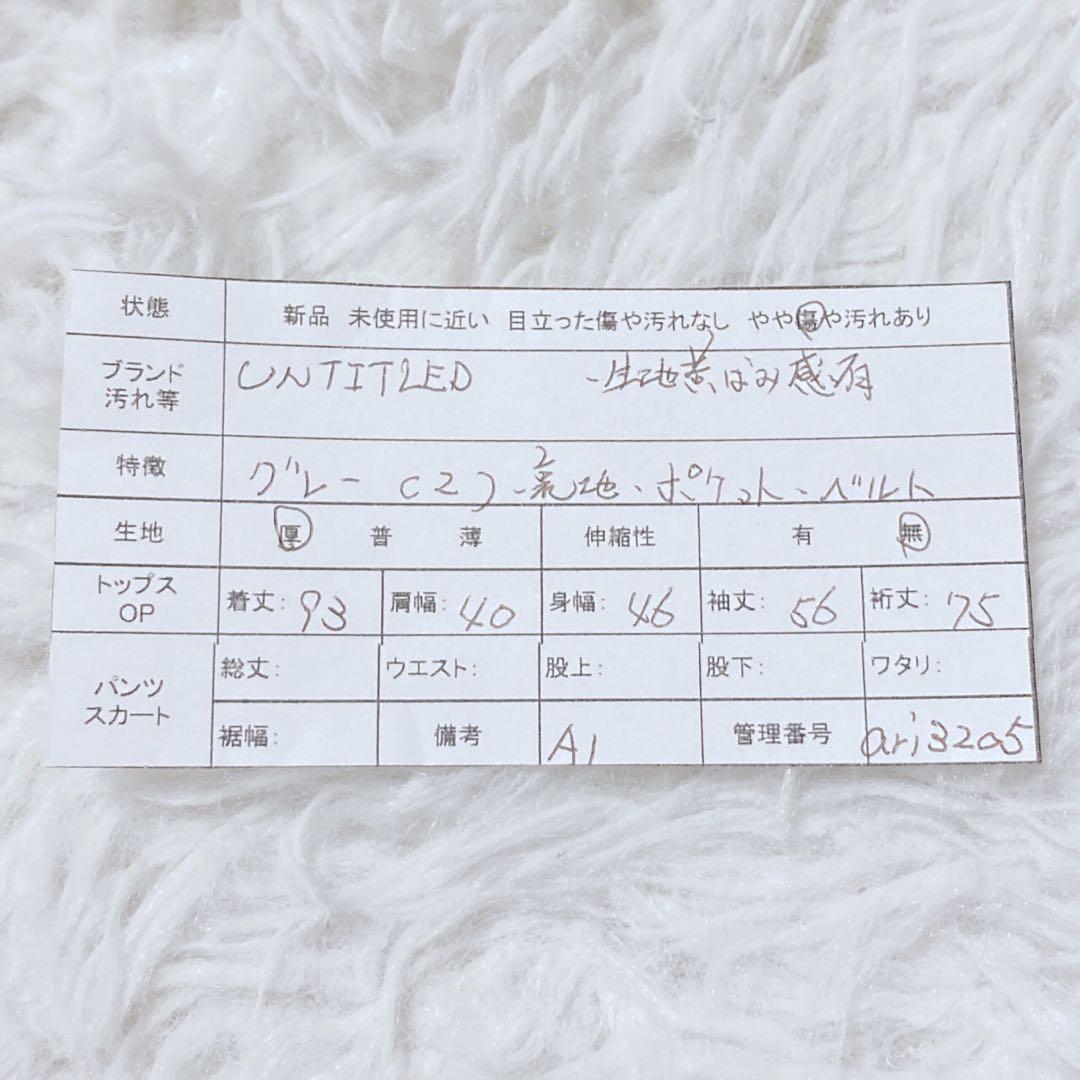 状態 新品 未使用に近い 目立った傷や汚れなし やや傷や汚れあり
ブランド 汚れ等 UNTITLED 、生地黄ばみ感有
特徴 グレー (2)、裏地、ポケット、ベルト
生地 厚 普 薄 伸縮性 有 無
トップス OP 着丈: 93 肩幅: 40 身幅: 46 袖丈: 56 裄丈: 75
パンツ スカート 総丈: ウエスト: 股上: 股下: ワタリ:
裾幅: 備考 A1 管理番号 ari3205